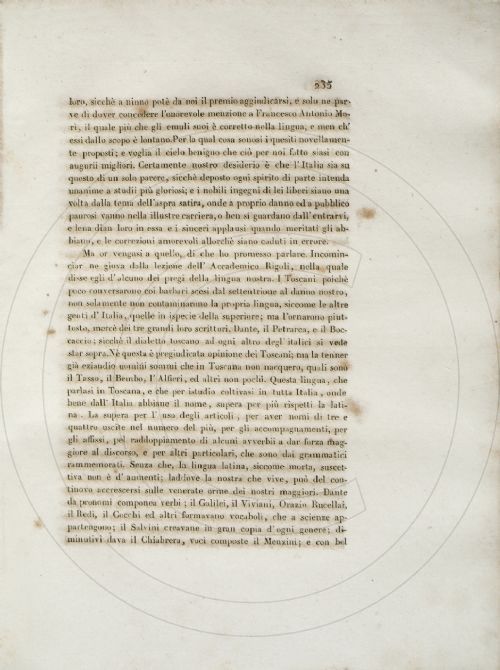 235
loro, sicchè a niuno potè da noi il premio aggiudicarsi, e solo ne par-
ve di dover concedere l'onorevole menzione a Francesco Antonio Mo-
ri, il quale più che gli emuli suoi è corretto nella lingua, e men ch'
essi dallo scopo è lontano. Per la qual cosa sonosi i quesiti novellamen-
te proposti; e voglia il cielo benigno che ciò per noi fatto siasi con
augurii migliori. Certamente nostro desiderio è che l'Italia sia su
questo di un solo parere, sicchè deposto ogni spirito di parte intenda
unanime a studii più gloriosi; e i nobili ingegni di lei liberi siano una
volta dalla tema dell'aspra satira, onde a proprio danno ed a pubblico
paurosi vanno nella illustre carriera, o ben si guardano dall'entrarvi,
e lena dian loro in essa e i sinceri applausi quando meritati gli ab-
biano, e le correzioni amorevoli allorchè siano caduti in errore.
Ma or vengasi a quello, di che ho promesso parlare. Incomin-
ciar ne giova dalla lezione dell' Accademico Rigoli, nella quale
disse egli d'alcuno dei pregi della lingua nostra. I Toscani poichè
poco conversarono coi barbari scesi dal settentrione al danno nostro,
non solamente non contaminarono la propria lingua, siccome le altre
genti d'Italia, quelle in ispecie della superiore; ma l'ornarono piut-
tosto, mercè dei tre grandi loro scrittori, Dante, il Petrarca, e il Boc-
caccio; sicchè il dialetto toscano ad ogni altro degl'italici si vede
star sopra. Nè questa è pregiudicata opinione dei Toscani; ma la tenner
già eziandio uomini sommi che in Toscana non nacquero, quali sono
il Tasso, il Bembo, l'Alfieri, ed altri non pochi. Questa lingua, che
parlasi in Toscana, e che per istudio coltivasi in tutta Italia, onde
bene dall'Italia abbiane il nome, supera per più rispetti la lati-
na. La supera per l'uso degli articoli, per aver nomi di tre e
quattro uscite nel numero del più, per gli accompagnamenti, per
gli affissi, pel raddoppiamento di alcuni avverbii a dar forza mag-
giore al discorso, e per altri particolari, che sono dai grammatici
rammemorati. Senza che, la lingua latina, siccome morta, suscet-
tiva non è d'aumenti; laddove la nostra che vive, può del con-
tinovo accrescersi sulle venerate orme dei nostri maggiori. Dante
da pronomi componea verbi; il Galilei, il Viviani, Orazio Rucellai,
il Redi, il Cocchi ed altri formavano vocaboli, che a scienze ap-
partengono; il Salvini creavane in gran copia d'ogni genere; di-
minutivi dava il Chiabrera, voci composte il Menzini; e con bel